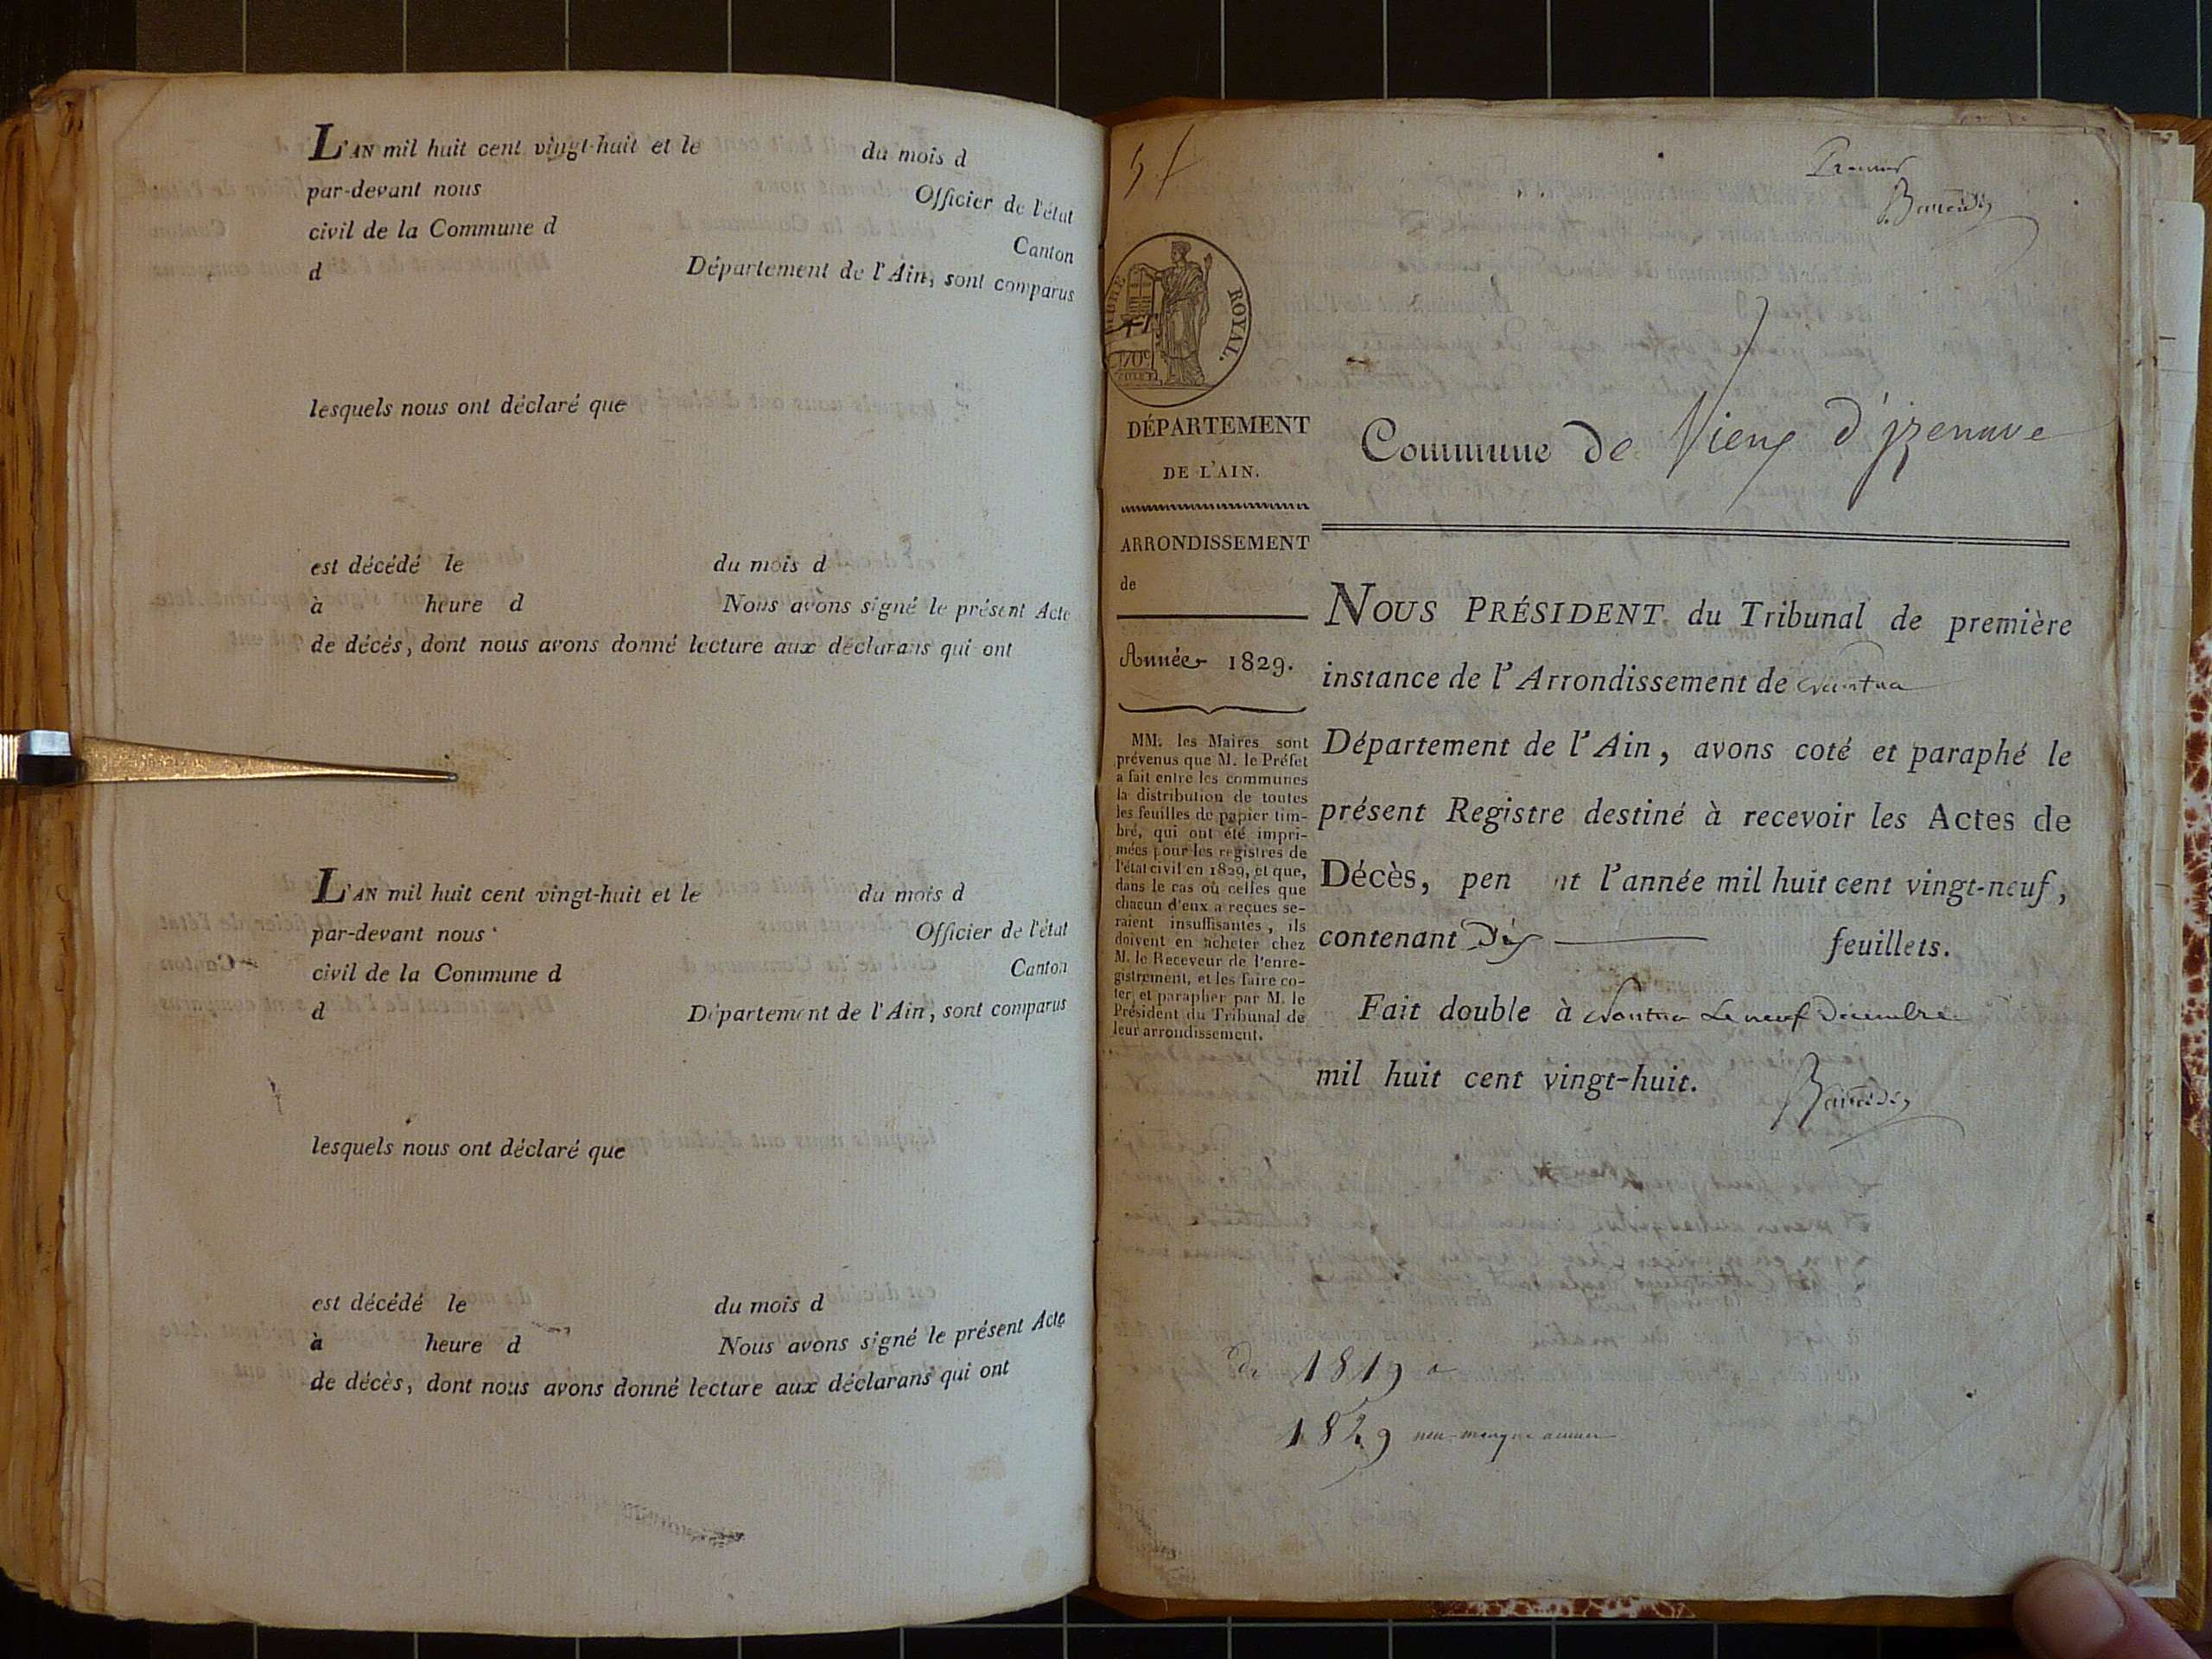 L'AN mil huit cent vingt-huit et le du mois d
par-devant nous Officier de l'état
civil de la Commune d Canton
d Département de l'Ain, sont comparus
lesquels nous ont déclaré que
est décédé le du mois d
à heure d Nous avons signé le présent Acte
de décès, dont nous avons donné lecture aux déclarans qui ont
L'AN mil huit cent vingt-huit et le du mois d
par-devant nous Officier de l'état
civil de la Commune d Canton
d Département de l'Ain, sont comparus
lesquels nous ont déclaré que
est décédé le du mois d
à heure d Nous avons signé le présent Acte
de décès, dont nous avons donné lecture aux déclarans qui ont
ROYAL.
DÉPARTEMENT
DE L'AIN.
ARRONDISSEMENT
de
Année 1829.
MM. les Maires sont
prévenus que M. le Préfet
a fait entre les communes
la distribution de toutes
les feuilles de papier tim-
bré, qui ont été impri-
mées pour les registres de
l'état civil en 1829, et que,
dans le cas où celles que
chacun d'eux a reçues se-
raient insuffisantes, ils
doivent en acheter chez
M. le Receveur de l'enre-
gistrement, et les faire co-
ter et parapher par M. le
Président du Tribunal de
leur arrondissement.
Commune de Vieux d'jzenave
NOUS PRÉSIDENT du Tribunal de première
instance de l'Arrondissement de Nantua
Département de l'Ain, avons coté et paraphé le
présent Registre destiné à recevoir les Actes de
Décès, pen nt l'année mil huit cent vingt-neuf,
contenant Dix feuillets.
Fait double à Nantua Le neuf Decembre
mil huit cent vingt-huit.
de 1819 a
1829